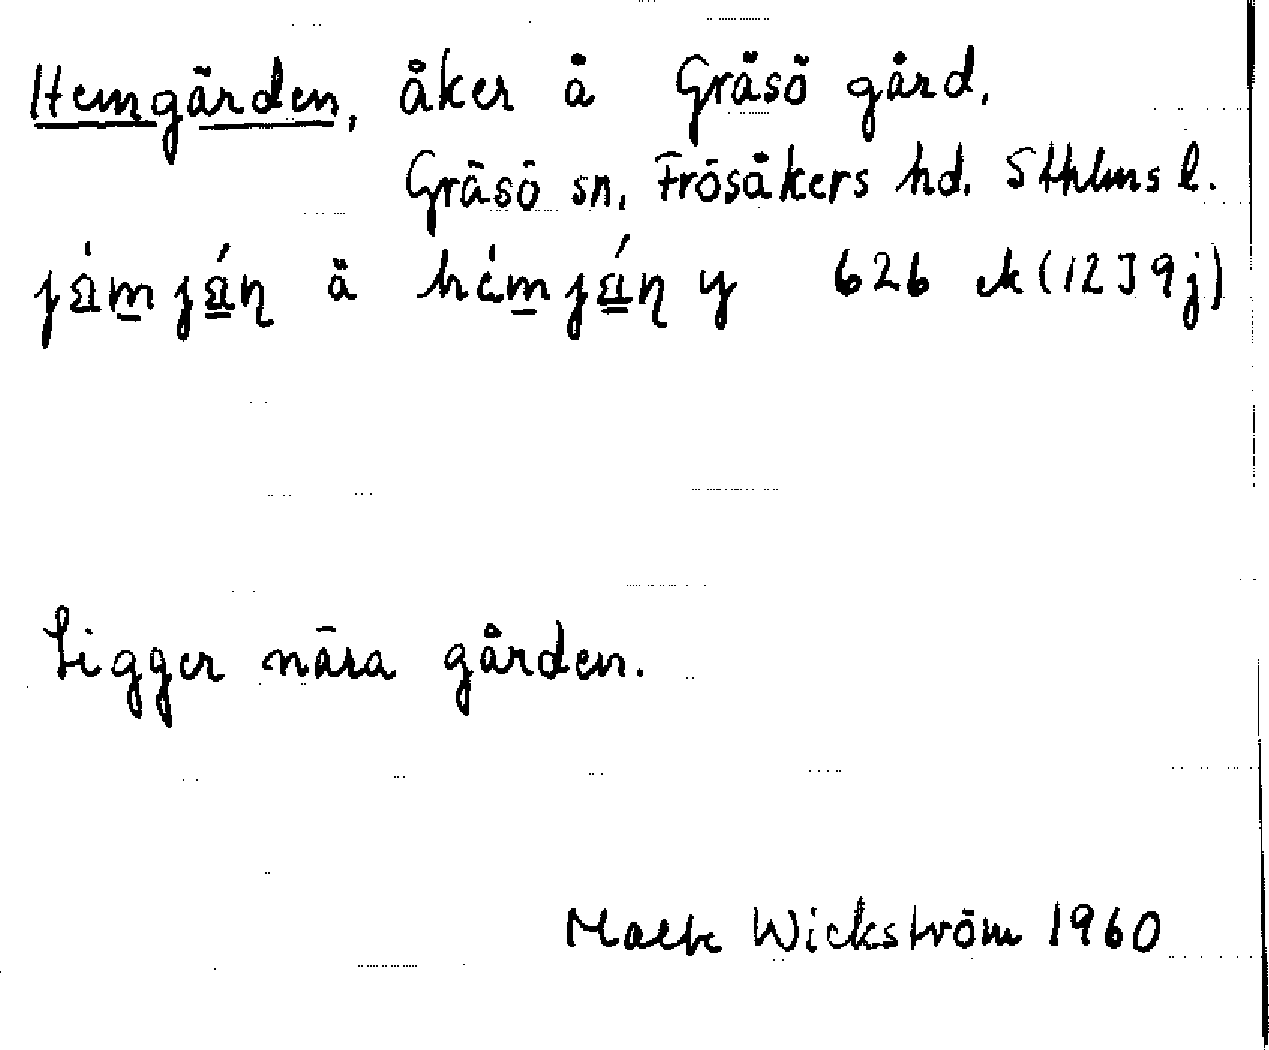 Hemgärden, åker å Gräsö gård,
Gräsö sn, Frösåkers hd. Sthlms l.
ä 626 ek (12J9j)
Ligger nära gården.
Wickström 1960